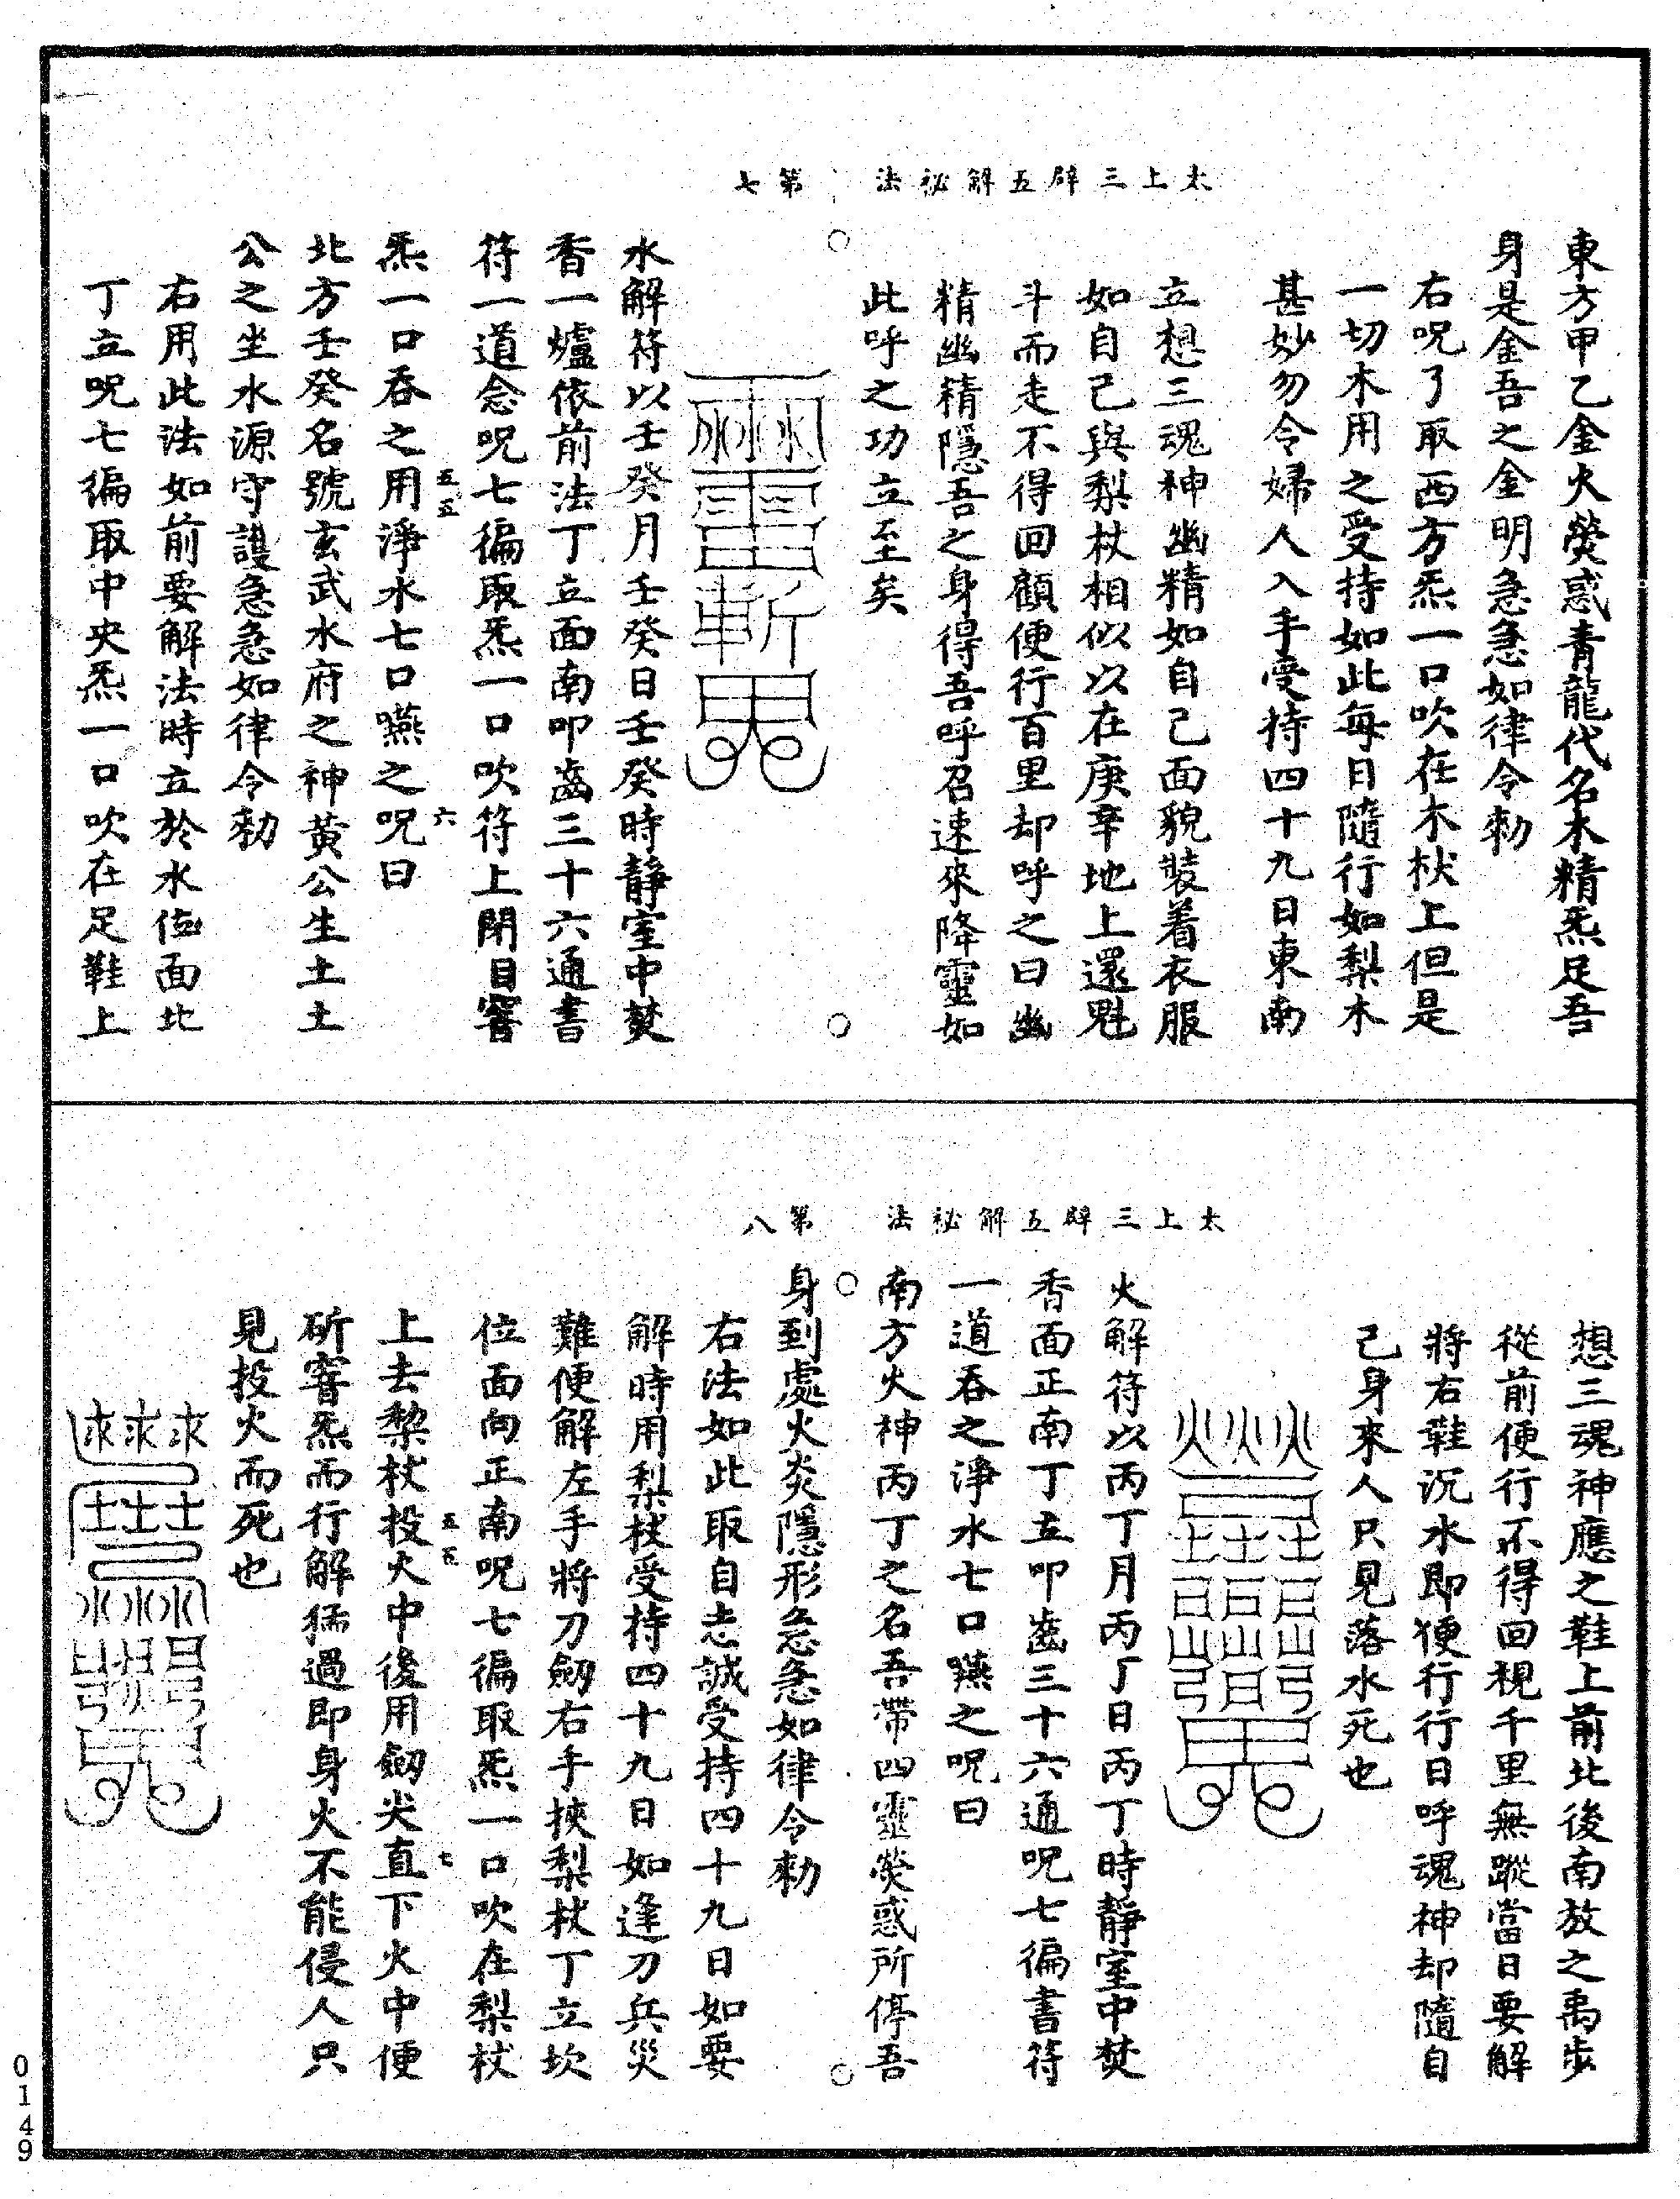 太上三辟五解祕法　第七
東方甲乙金火熒惑青龍代名木精炁足吾
身是金吾之金明急急如律令勑
右呪了取西方炁一口吹在木杖上但是
一切木用之受持如此每日隨行如梨木
甚妙勿令婦人入手受持四十九日東南
立想三魂神幽精如自己面貌裝着衣服
如自己與梨杖相似以在庚辛地上還魁
斗而走不得回顧便行百里却呼之曰幽
精幽精隱吾之身得吾呼召速來降靈如
此呼之功立至矣
水解符以壬癸月壬癸日壬癸時靜室中焚
香一爐依前法丁立面南叩齒三十六通書
符一道念呪七徧取炁一口吹符上閉目窨
五五　六
炁一口吞之用淨水七口嚥之呪曰
北方壬癸名號玄武水府之神黃公生土土
公之坐水源守護急急如律令勑
右用此法如前要解法時立於水位面北
丁立呪七徧取中央炁一口吹在足鞋上
太上三辟五解祕法　第八
想三魂神應之鞋上前北後南放之禹步
從前便行不得回視千里無蹤當日要解
將右鞋沉水即便行行日呼魂神却隨自
己身來人只見落水死也
火解符以丙丁月丙丁日丙丁時靜室中焚
香面正南丁立叩齒三十六通呪七徧書符
一道吞之淨水七口嚥之呪曰
南方火神丙丁之名吾帶四靈熒惑所停吾
身到處火炎隱形急急如律令勑
右法如此取自志誠受持四十九日如要
解時用梨杖受持四十九日如逢刀兵災
難便解左手將刀劒右手挾梨杖丁立坎
位面向正南呪七徧取炁一口吹在梨杖
五五　七
上去梨杖投火中後用劒尖直下火中便
斫窨炁而行解猛過即身火不能侵人只
見投火而死也
0149